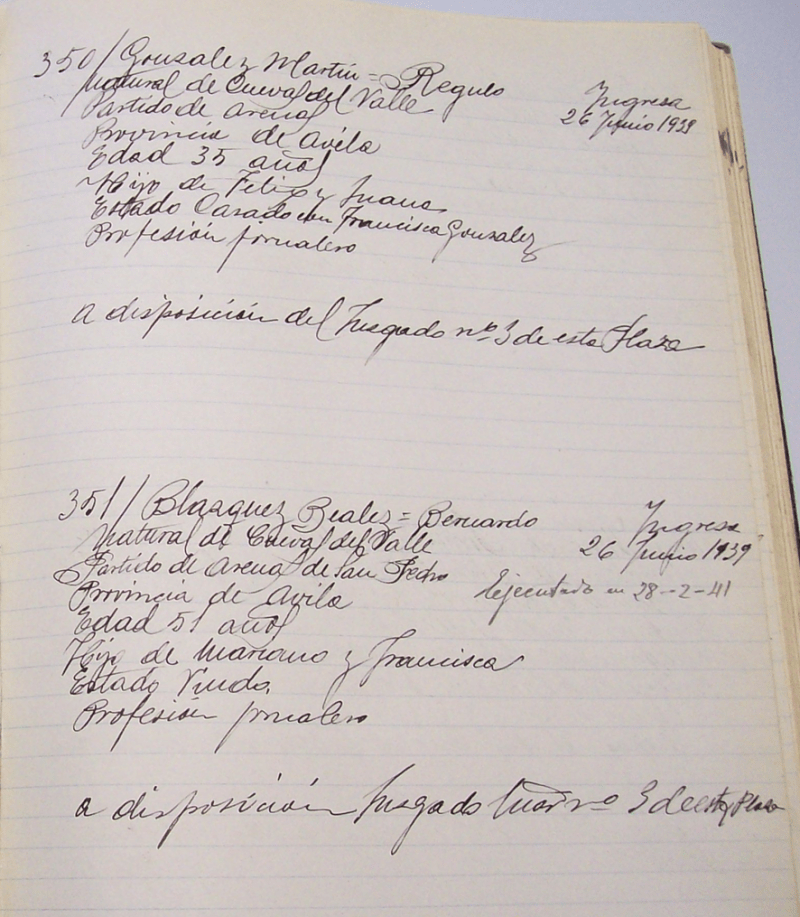 350/ Gonzalez Martin = Regulo
Natural de Cuevas del Valle
Ingresa
Partido de Arenas
26 Junio 1939
Provincia de Avila
Edad 35 años
Hijo de Felix y Juana
Estado Casado con Francisca Gonzalez
Profesión jornalero
a disposición del Juzgado nº 3 de esta Plaza
351/ Blazquez Bealez = Bernardo
Ingresa
Natural de Cuevas del Valle
26 Junio 1939
Partido de Arenas de San Pedro
Ejecutado en 28-2-41
Provincia de Avila
Edad 51 años
Hijo de Mariano y Francisca
Estado Viudo
Profesión jornalero
a disposición Juzgado 3 de esta Plaza